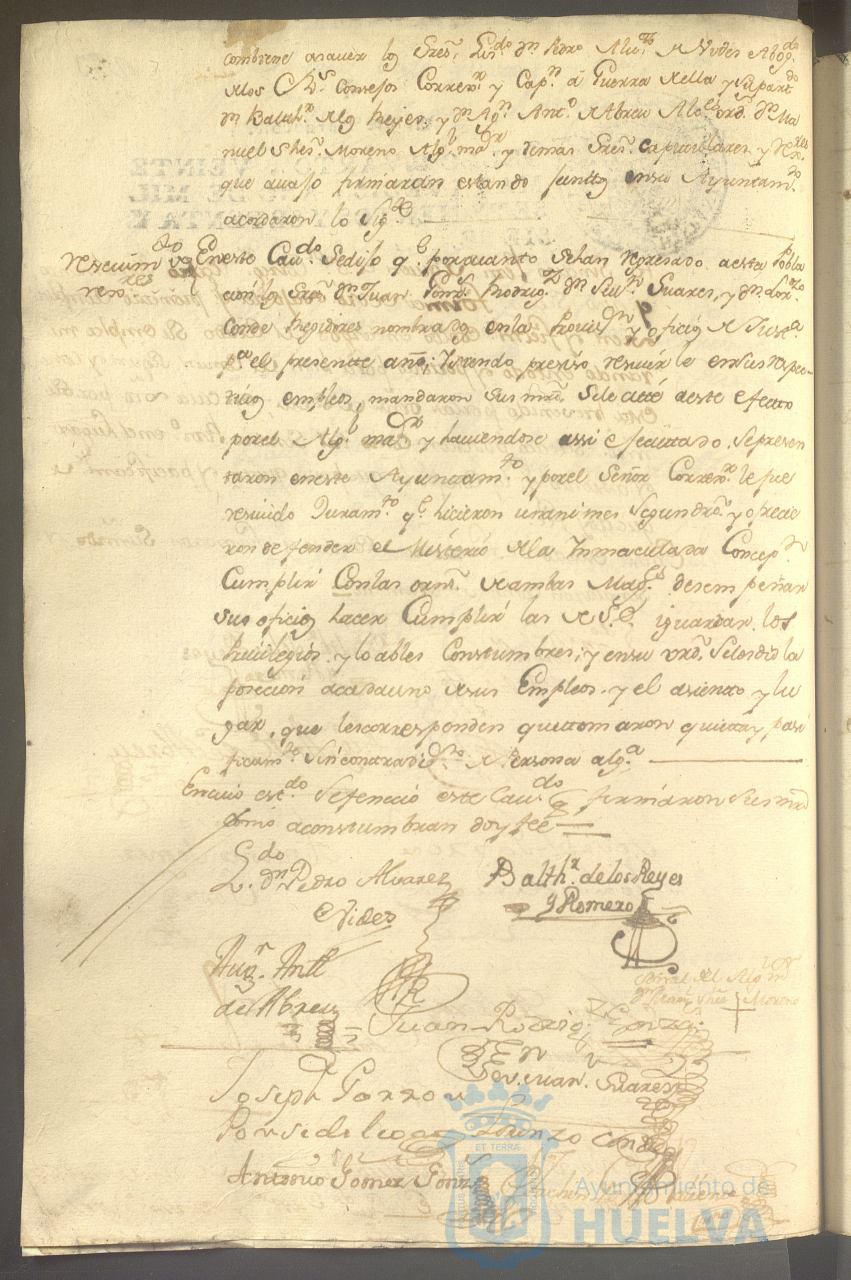 combiene a saver los Sres. Lizdo. Dn. Pedro Alvz. de Vides Abogdo.
de los Rs. Consejos Correxr. y Capn. á Guerra de ella y su partdo.
Dn. Balthr. de los Reyes, y Dn. Agn. Anto. de Abreu Alces. ords. Dn. Ma
nuel Shes. Moreno Algl. mor. y demas Sres. capitulares, y
que avajo firmarán estando junttos en su Ayuntamto.
acordaron lo sigte.
rescivimto. de
rexres.
En este Cavdo. se dijo qe. por quanto se han regresado a esta Pobla
ción los Sres. Dn. Juan Gonzs. Rodrigz. Dn. Suares, y Dn. Lorzo.
Conde Regidores nombrados en la Provisn. y oficios de Justa.
pa. el presentte año, y siendo preciso rescivirle en sus respec-
tivos empleos, mandaron sus mrds. se le citté a este efecto
por el Algl. mor. y haviendose assi efecuttado, se presen
taron en este Ayuntamto. y por el Señor Correxr. le fue
resivido Juramto. qe. hicieron unanimes segun dro. y ofrecie
ron defender el Misterio de la Inmaculada Concepn.
Cumplir Con las orns. de ambas Mages. desempeñar
sus oficios hacer Cumplir las de S.E. i guardar los
Privilegios, y loables Constumbres; y en su vrd. se les dió la
posecion a cada uno de sus Empleos, y el asiento y lu
gar, que les corresponden que tomaron quieta y pasi
ficamte. sin contradicon. de Persona alga.
En cuio estdo. se fenecio este Cavdo. qe. firmaron sus mrds.
como acostumbran doy fee
Ldo. Dn. Pedro Alvarez
de Vides
Balthr. de los Reyes
y Romero
Augn. Antto.
de Abreu
Señal del Algl. mor.
Dn. Manl. Shes. + Moreno
Juan Rodrig. Gonza.
Juan Suares
Joseph Garzon
Ponse de leon
Lorenzo Conde
Antonio Gomez Gonzs.
ET TERRÆ
Ayuntamiento de
HUELVA